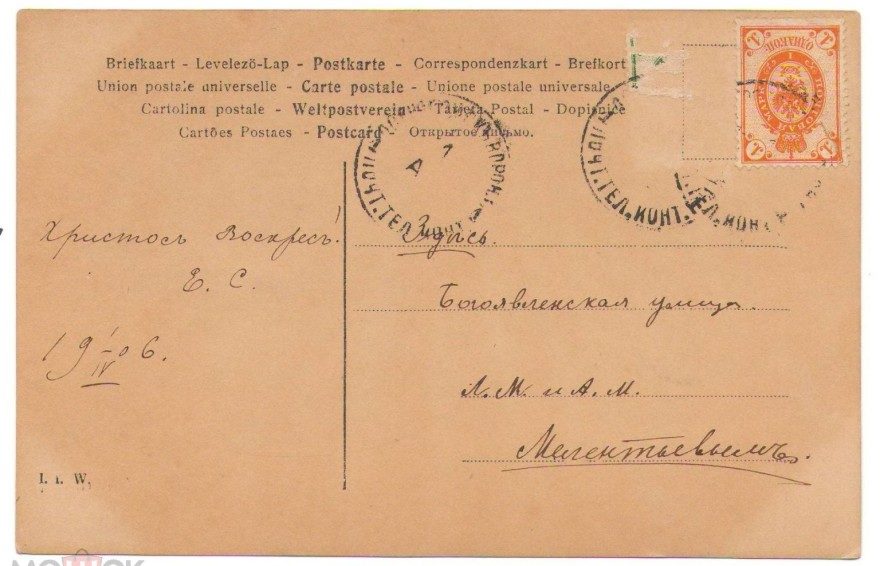 Briefkaart - Levelező-Lap - Postkarte - Correspondenzkart - Brefkort
Union postale universelle - Carte postale - Unione postale universale
Cartolina postale - Weltpostverein - Tarjeta Postal - Dopisnice
Cartões Postaes - Postcard - Открытое письмо.
Христосъ Воскресъ!
Е. С.
19 1/IV 06.
Здѣсь.
Богоявленская улица.
Л. М. и А. М.
Мелентьевымъ.
I. I. W.
ПОЧТ. ТЕЛ. КОНТ.
ПОЧТ. ТЕЛ. КОНТ.
ТЕЛ. КОНТ.
1